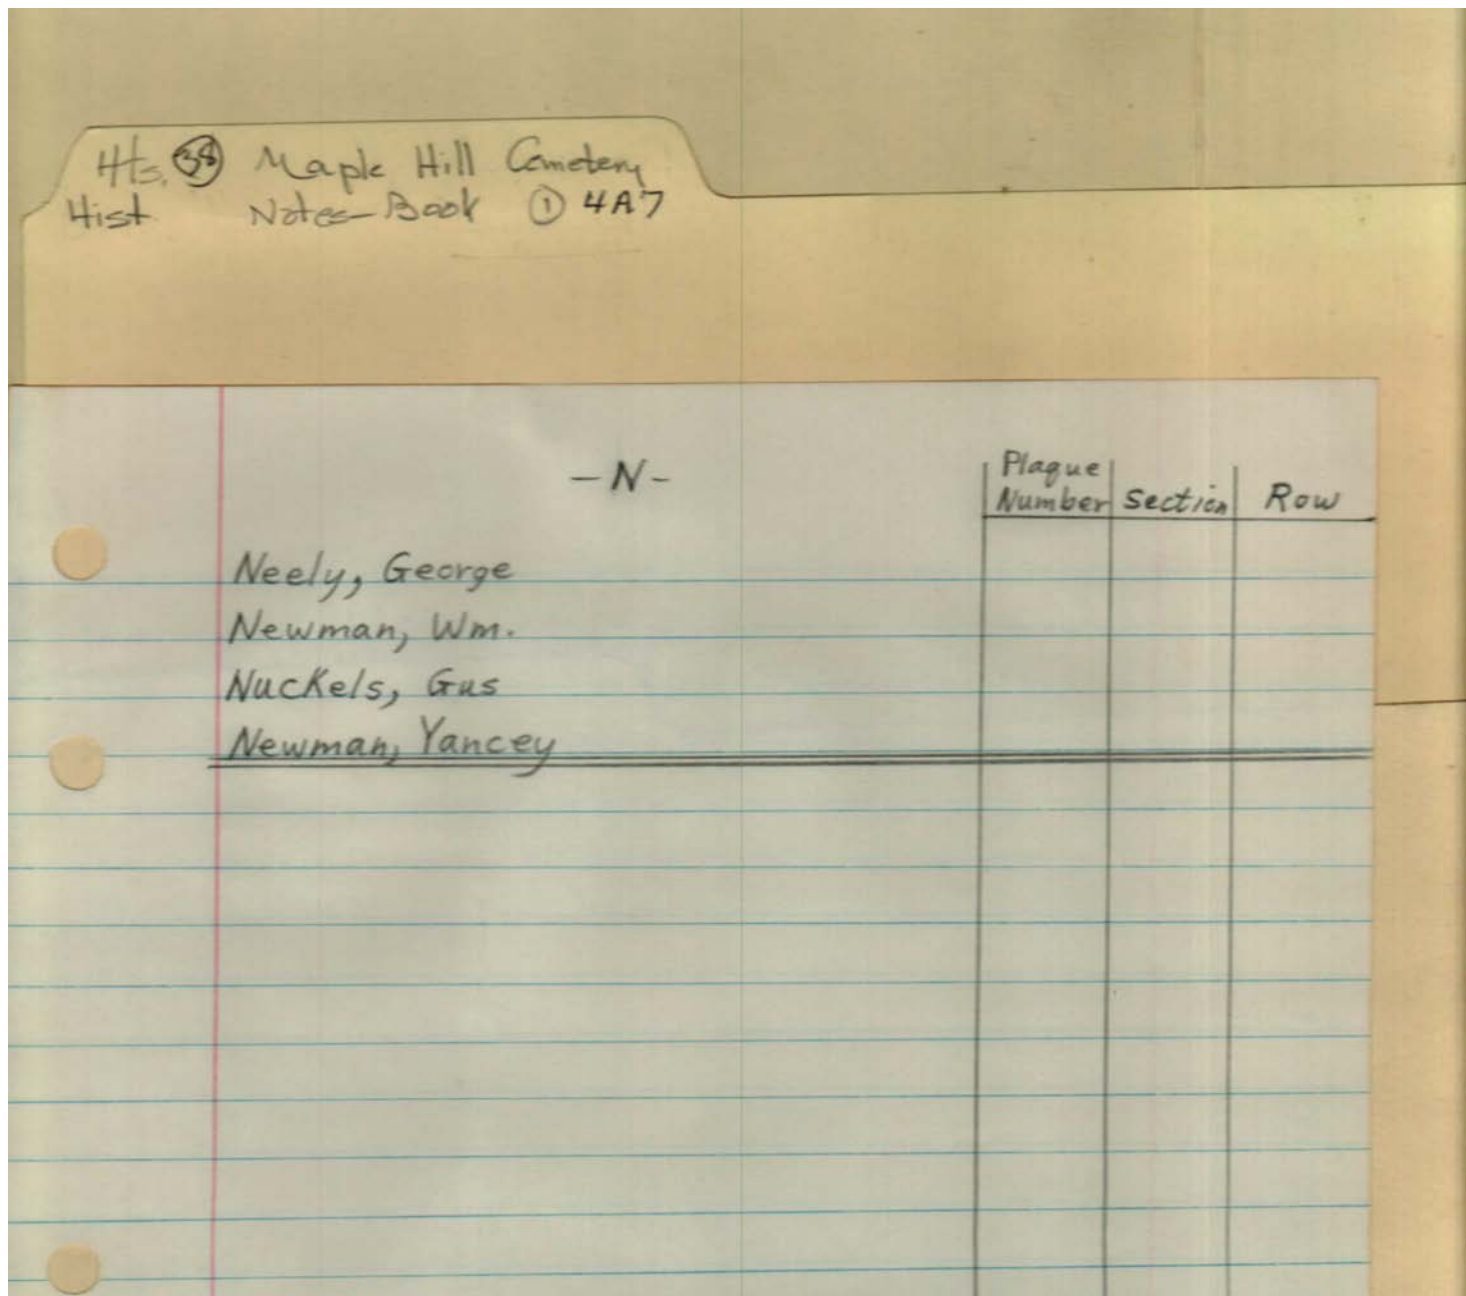 Hts. 38 Maple Hill Cemetery
Hist Notes-Book 1 4A7
-N-
Plaque Number Section Row
Neely, George
Newman, Wm.
Nuckels, Gus
Newman, Yancey